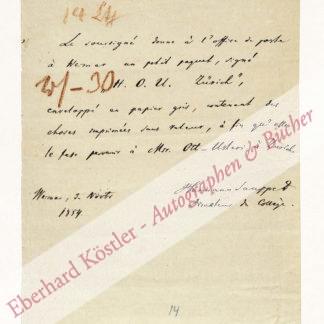 14 L
Le soussigné donne à l'office de poste
à Weimar un petit paquet, signé
H. O. U. Zürich",
w/-30
enveloppé en papier gris, contenant des
choses imprimées sans valeur, à fin qu'elle
le fasse parvenir à Msr. Ott-Usteri à Zürich
Weimar, 3. Novbr
1854.
Hermann Sauppe
Directeur du Collège.
14
Eberhard Köstler - Autographen & Bücher